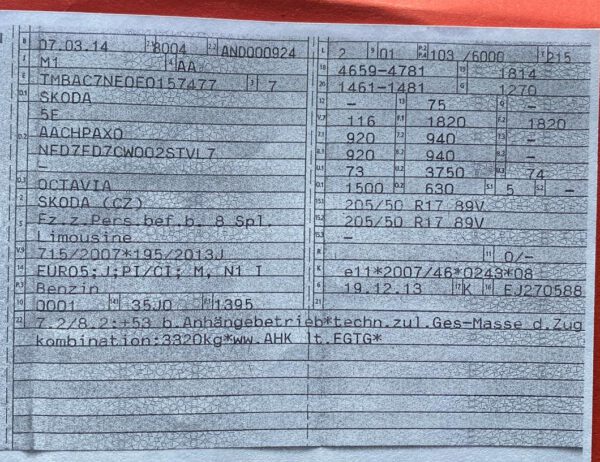 B 07.03.14 2.1 8004 2.2 AND000924
J M1 4 AA
E TMBAC7NE0E0157477 3 7
D.1 SKODA
5E
D.2 AACHPAX0
NFD7FD7CW002STVL7
-
D.3 OCTAVIA
2 SKODA (CZ)
5 Fz.z.Pers.bef.b. 8 Spl.
Limousine
V.9 715/2007*195/2013J
14 EURO5;J;PI/CI; M, N1 I
P.3 Benzin
10 0001 14.1 35J0 P.1 1395
L 2 9 01 P.2 P.4 103 /6000 T 215
18 4659-4781 19 1814
20 1461-1481 G 1270
12 - 13 75 Q -
V.7 116 F.1 1820 F.2 1820
7.1 920 7.2 940 7.3 -
8.1 920 8.2 940 8.3 -
U.1 73 U.2 3750 U.3 74
O.1 1500 O.2 630 S.1 5 S.2 -
15.1 205/50 R17 89V
15.2 205/50 R17 89V
15.3 -
R 11 0/-
K e11*2007/46*0243*08
6 19.12.13 17 K 16 EJ270588
21
22 7.2/8.2:+53 b.Anhängebetrieb*techn.zul.Ges-Masse d.Zug
kombination:3320kg*ww.AHK lt.EGTG*